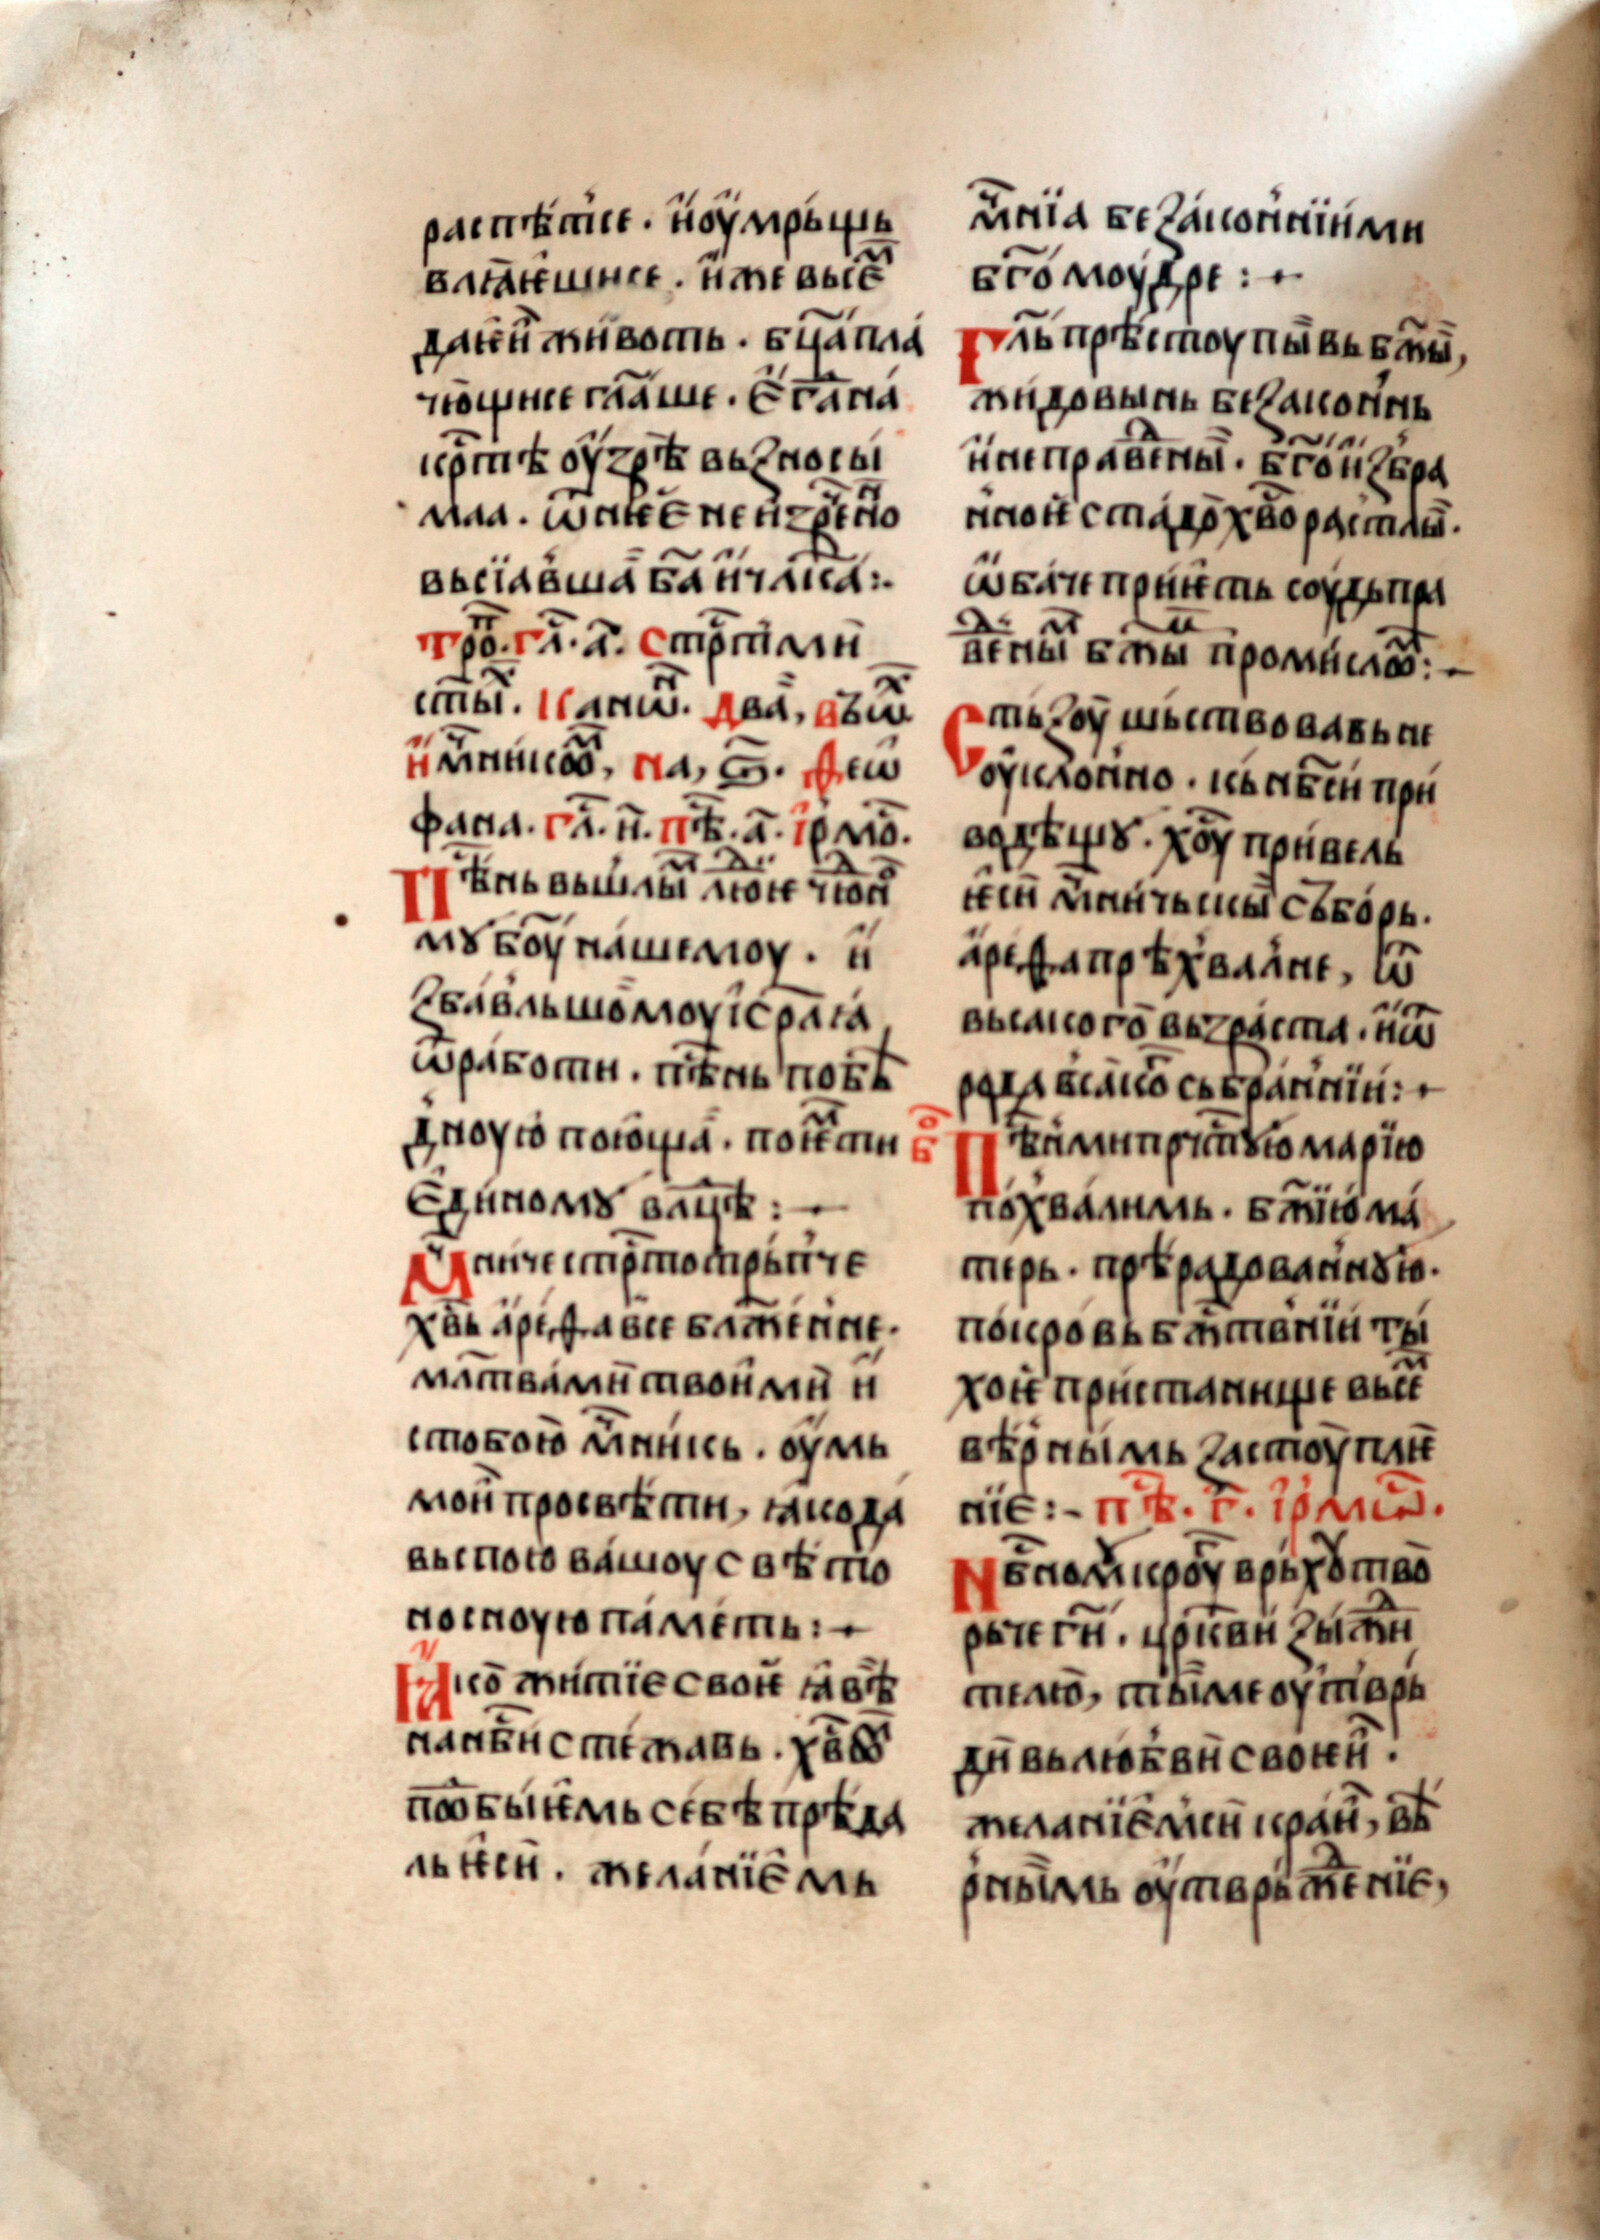 распѣтіе. и҆ оу҆мрьщь
влꙗ҆єши́се. и҆же высѣ̑
даѥ҆и҆ живо́ть. бц҃а пла́
чю́щисе гл҃аше. є҆гда на
кр҃тѣ оу҆зрѣ вьꙁносы
ма. ѿ нѥ́є неиꙁре́нно
вьсїа́вша б҃а и҆ чл҃ка:.
трѡ҇. гл҃. а҃. стрⷭ҇тїми
ст҃ы. Канѡ҇. два̀, ѡ҆сѡ҇
и҆ мн҃икѡ҇, на, ѕ҃. Ѳеѡ
фана. гл҃. и҃. пѣ҇. а҃. і҆рмѡ҇.
Пѣ́нь вьшлы҇ люⷣѥ чюⷣно
мꙋ бо҃у на́шемоу. и҆
ꙁба́вльшомоу і҆ср҃аꙗ
ѿ ра́боти. пѣ́нь побѣ
дноую пою́ща. поѥ҆ти
є҆ди́номꙋ влⷣцѣ: –
М҃ниче стрⷭ҇тотрьпче
хв҃ь а҆реѳа все блаже́нне.
мл҃твами твои́ми и҆
стобою м҃ни́кь. оу҆мь
мои҆ просвѣти, ꙗко да
вьспою ва́шоу свѣто
носноую па́меть: –
Ꙗко жи́тїе своѥ҆ ꙗ҆вѣ
на нб҃си стежавь. хв҃ѡ҇
подбыѥ҆мь себѣ прѣда
льѥ҆си. жела́нїємь
м҃нїа беꙁако́нныими
бг҃омоу́дре: –
Гл҃ь прѣстоу пы́вь бжⷭ҇ы,
жи́довынь беꙁако́ннь
и҆ непра́веⷣны. бг҃ои҆ꙁбра
нноѥ стадо хв҃о растлы.
ѡ҆ба́че приѥть соу́дь пра
веⷣны бжⷭ҇ты про́мислѡ҇: –
Стьꙁоу҆ шьствовавь не
оу҆кло́нно. кь нб҃си при
водѣщꙋ. хо҃у приве́ль
ѥ҆си м҃ничьскы сьбо́рь.
а҆реѳа прѣхва́лне, ѿ
высакого вьꙁраста. и҆ ѿ
рода всако сьбра́нныи: –
б҃ Пѣ́ими прчⷭ҇тꙋю марїю
похва́лимь. бж҃їю ма́
терь. прѣра́дованнꙋю.
по́кровь бжⷭ҇твнїи ты
хоѥ приста́нище высѣ҇
вѣ́рнымь ꙁастоу́плѥ
нїє:– пѣ҇. г҃. і҆рмѡ҇.
Нбⷭ҇номꙋ кро́у врьхо тво
рьче ги҃. цр҃кви ꙁыжⷣи
телю, ты ме оу҆тврь
ди вь любви своѥи.
жела́нїємь и҆ кра́и, вѣ
рны́мь оу҆тврьжⷣе́нїє,